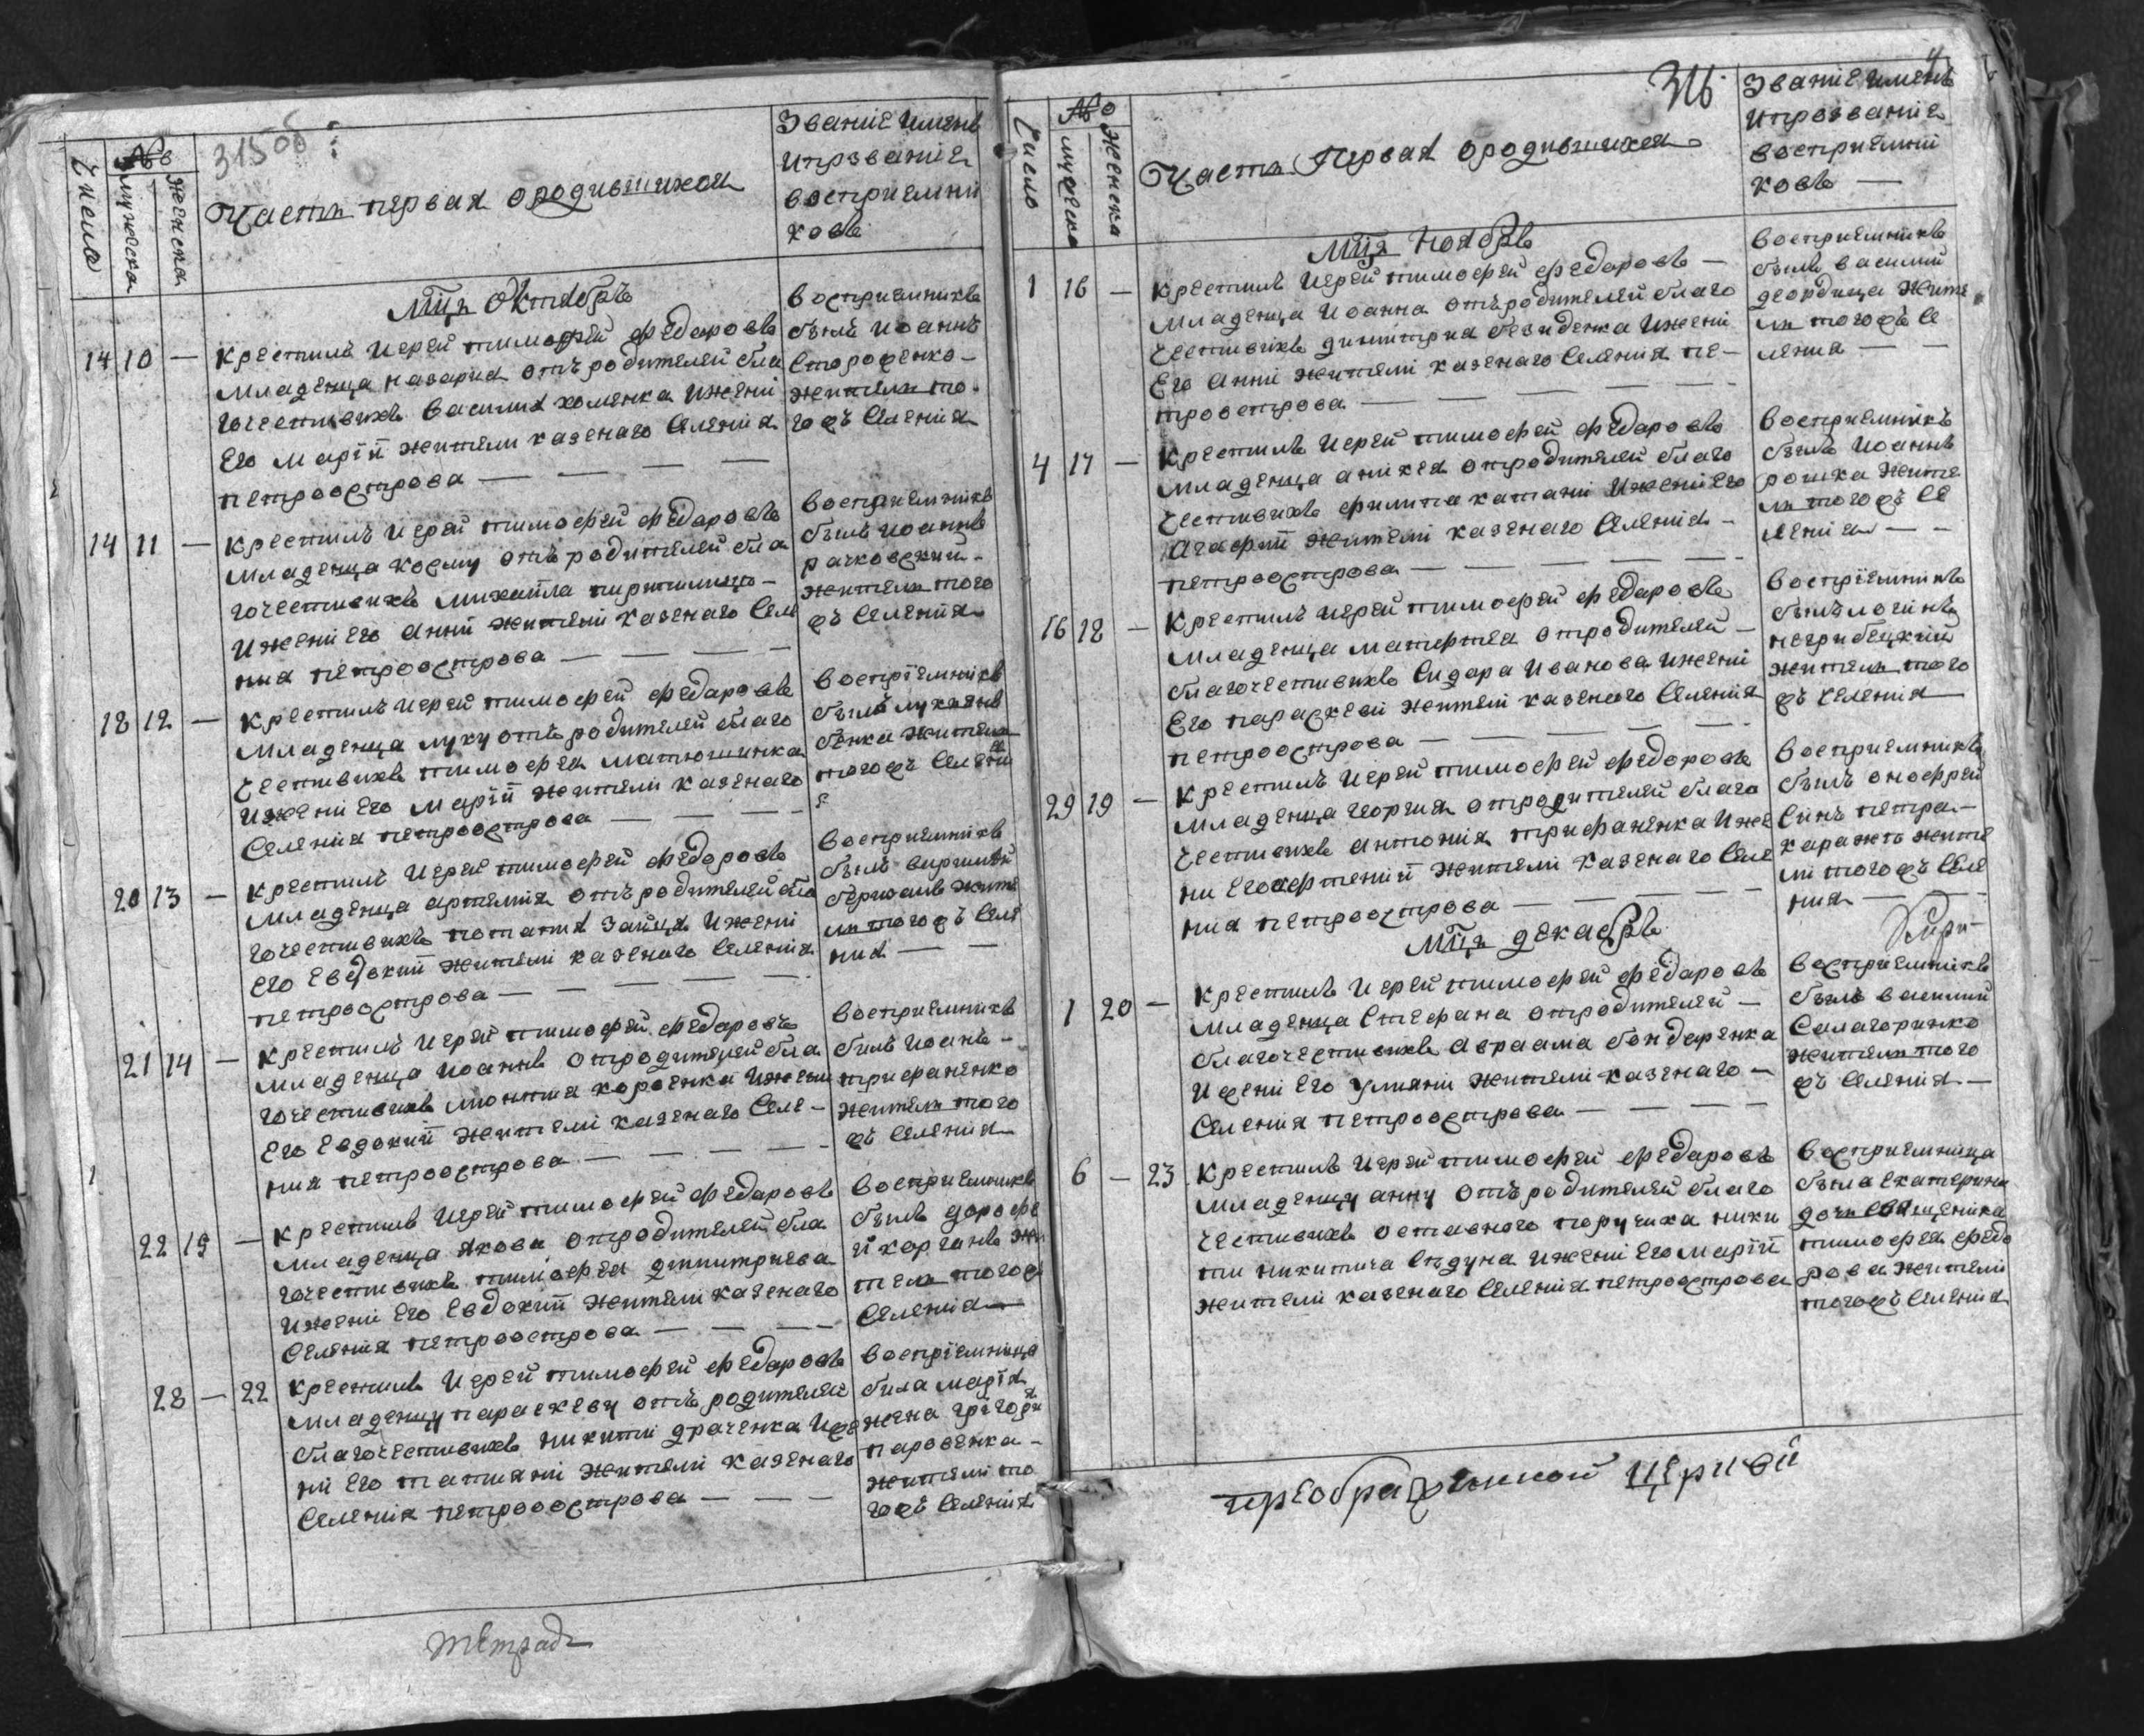 315об
Число
№
мужеска
женска
Часть первая ородившихся
Званіе имень
ипрозваніе
восприемни
ковъ
Мцъ Октябръ
14 10 — Крестилъ иерей тимофей федаровъ
младенца назариа отъ родителей бла
гочестивихъ василиа хоменка ижені
Его маріи жителі казенаго селеніа
петроострова — — — —
восприемникъ
былъ иоаннъ
стороженко —
житель то
гожъ селеніа
14 11 — Крестилъ иерей тимофей федаровъ
младенца косму отъ родителей бла
гочестивихъ михаила
ижені Его анни жителі казенаго селе
ниа петроострова — — — —
восприемникъ
былъ иоаннъ
рачковский —
житель того
жъ селеніа
18 12 — Крестилъ иерей тимофей федаровъ
младенца луку отъ родителей благо
честивихъ тимофеа матюшинка
ижені Его маріи жителі казенаго
селеніа петроострова — — —
воспріемникъ
былъ лукианъ
бенка житель
тогожъ селени
20 13 — Крестилъ иерей тимофей федоровъ
младенца артеміа отъ родителей бла
гочестивихъ потапиа зайца ижені
его Евдокии жителі казенаго селеніа
петроострова — — — —
восприемникъ
былъ
жите
ль тогожъ селе
ниа — —
21 14 — Крестилъ иерей тимофей федаровъ
младенца иоаннъ отродителей бла
гочестивихъ короенка ижени
Его Евдокии жителі казенаго селе —
ния петроострова — — — —
восприемникъ
билъ иоанъ —
трифаненко
житель того
жъ селениа
22 15 — Крестилъ иерей тимофей федаровъ
младенца якова отродителей бла
гочестивихъ тимофеа димитриева
ижені Его Евдокии жителі казенаго
селениа петроострова — — —
восприемникъ
былъ дорофе
й корганъ жи
тель тогож
селениа —
28 — 22 Крестилъ иерей тимофей федаровъ
младенцу параскеву отъ родителей
благочестивихъ никити драченка иже
ни Его татиани жителі казенаго
селеніа петроострова — — —
воспріемница
била маріа
жена григори
паровенка —
жителі то
гожъ селеніа
тетрадь
316
4
Число
№
мужеска
женска
Часть первая ородившихся
Званіе имень
ипрозваніе
восприемні
ковъ —
Мцъ Ноябръ
1 16 — Крестилъ иерей тимофей федаровъ —
младенца иоанна отъродителей благо
честивихъ димитриа безиденка ижені
Его Анні жителі казенаго селениа пе —
троострова — — — —
восприемникъ
былъ василий
деордица жите
ль тогожъ се
лениа — —
4 17 — Крестилъ иерей тимофей федаровъ
младенца аникеа отродителей благо
честивихъ филипа катані ижені Его
Агафии жителі казенаго селеніа —
петроострова — — — —
восприемникъ
былъ иоаннъ
рошка жите
ль тогожъ се
лениа — —
16 18 — Крестилъ иерей тимофей федаровъ
младенца матфтеа отродителей —
благочестивихъ сидара иванова ижені
Его параскеві жителі казенаго селеніа
петроострова — — — —
воспріемникъ
былъ логинъ
негрибецкий
житель того
жъ селениа
29 19 — Крестилъ иерей тимофей федоровъ
младенца георгиа отродителей благо
честивихъ антониа трифаненка иже
ни Его жителі казенаго селе
ниа петроострова — — — —
восприемникъ
былъ онофрей
синъ петра —
каражъ жите
ли тогожъ селе
ниа —
Мцъ Декабръ
1 20 — Крестилъ иерей тимофей федаровъ
младенца стефана отродителей —
благочестивихъ авраама бондаренка
ижені Его улияні жителі казенаго —
селениа петроострова — — — —
восприемникъ
былъ василий
салагоринко
житель того
жъ селеніа —
6 — 23 Крестилъ иерей тимофей федаровъ
младенцу анну отъ родителей благо
честивихъ оставного поручика ники
ти никитича ижені Его маріи
жителі казенаго селеніа петроострова
восприемница
была екатерина
дочь священика
тимофеа федо
рова жителі
тогожъ селениа
преображенской церкви